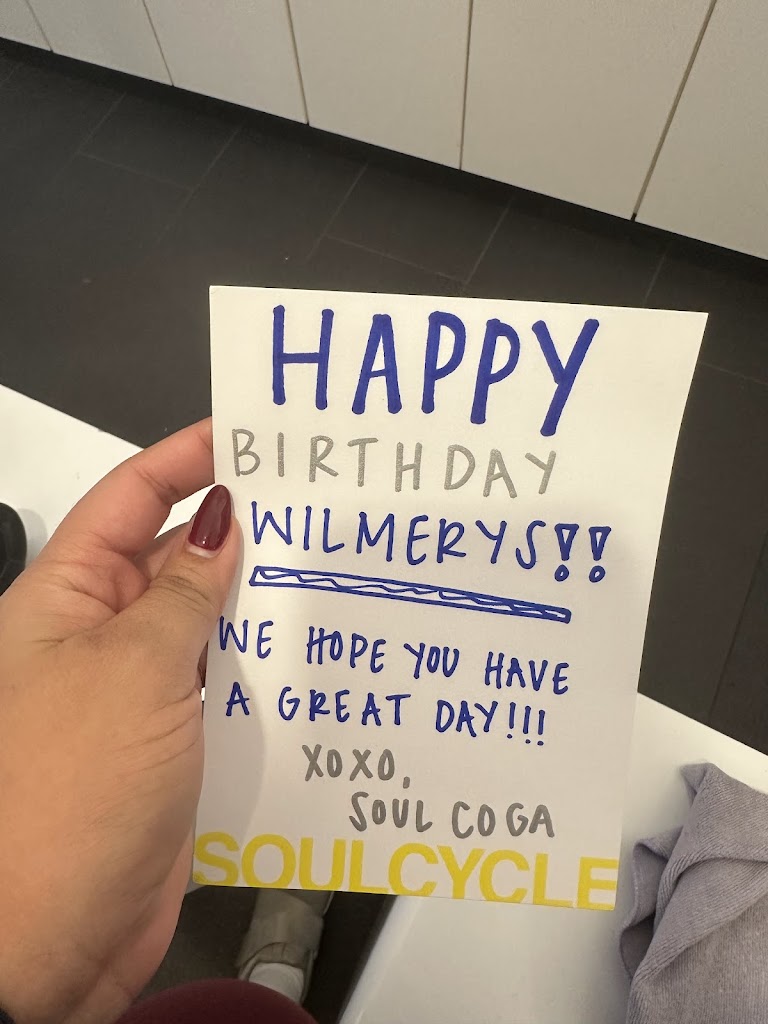 HAPPY
BIRTHDAY
WILMERYS!!
WE HOPE YOU HAVE
A GREAT DAY!!!
XOXO,
SOUL COGA
SOULCYCLE